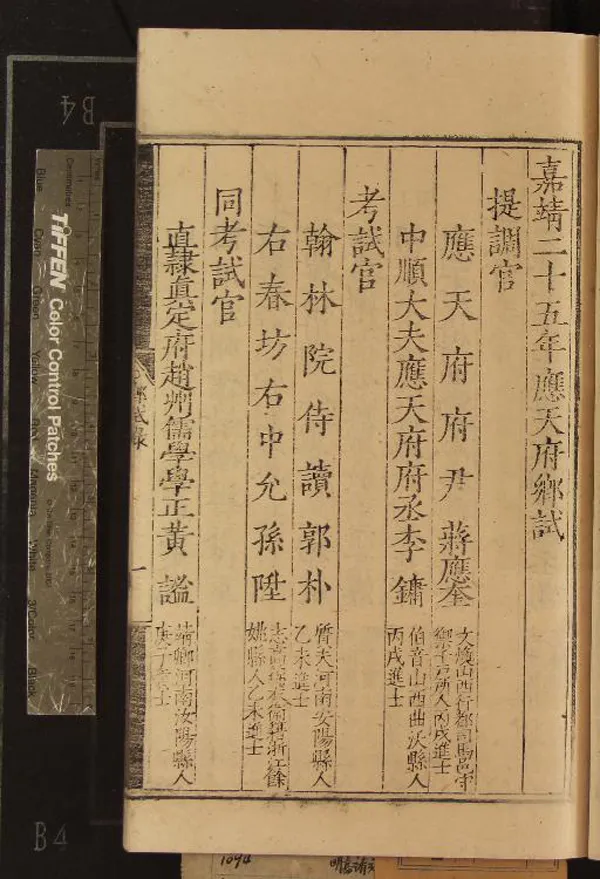 嘉靖二十五年應天府鄉試
提調官
應天府府尹蔣應奎
文煥山西行都司馬邑守
禦千戶所人丙戌進士
中順大夫應天府府丞李鏞
伯音山西曲沃縣人
丙戌進士
考試官
翰林院侍讀郭朴
質夫河南安陽縣人
乙未進士
右春坊右中允孫陞
志高 衛籍浙江餘
姚縣人乙未進士
同考試官
直隸真定府趙州儒學學正黃謐
靖鄉河南汝陽縣人
庚子
鄉試錄
一
TIFFEN Color Control Patches
Centimetres
Blue
Cyan
Green
Yellow
Red
Magenta
White
3/Color
Black
B4
B4
1094